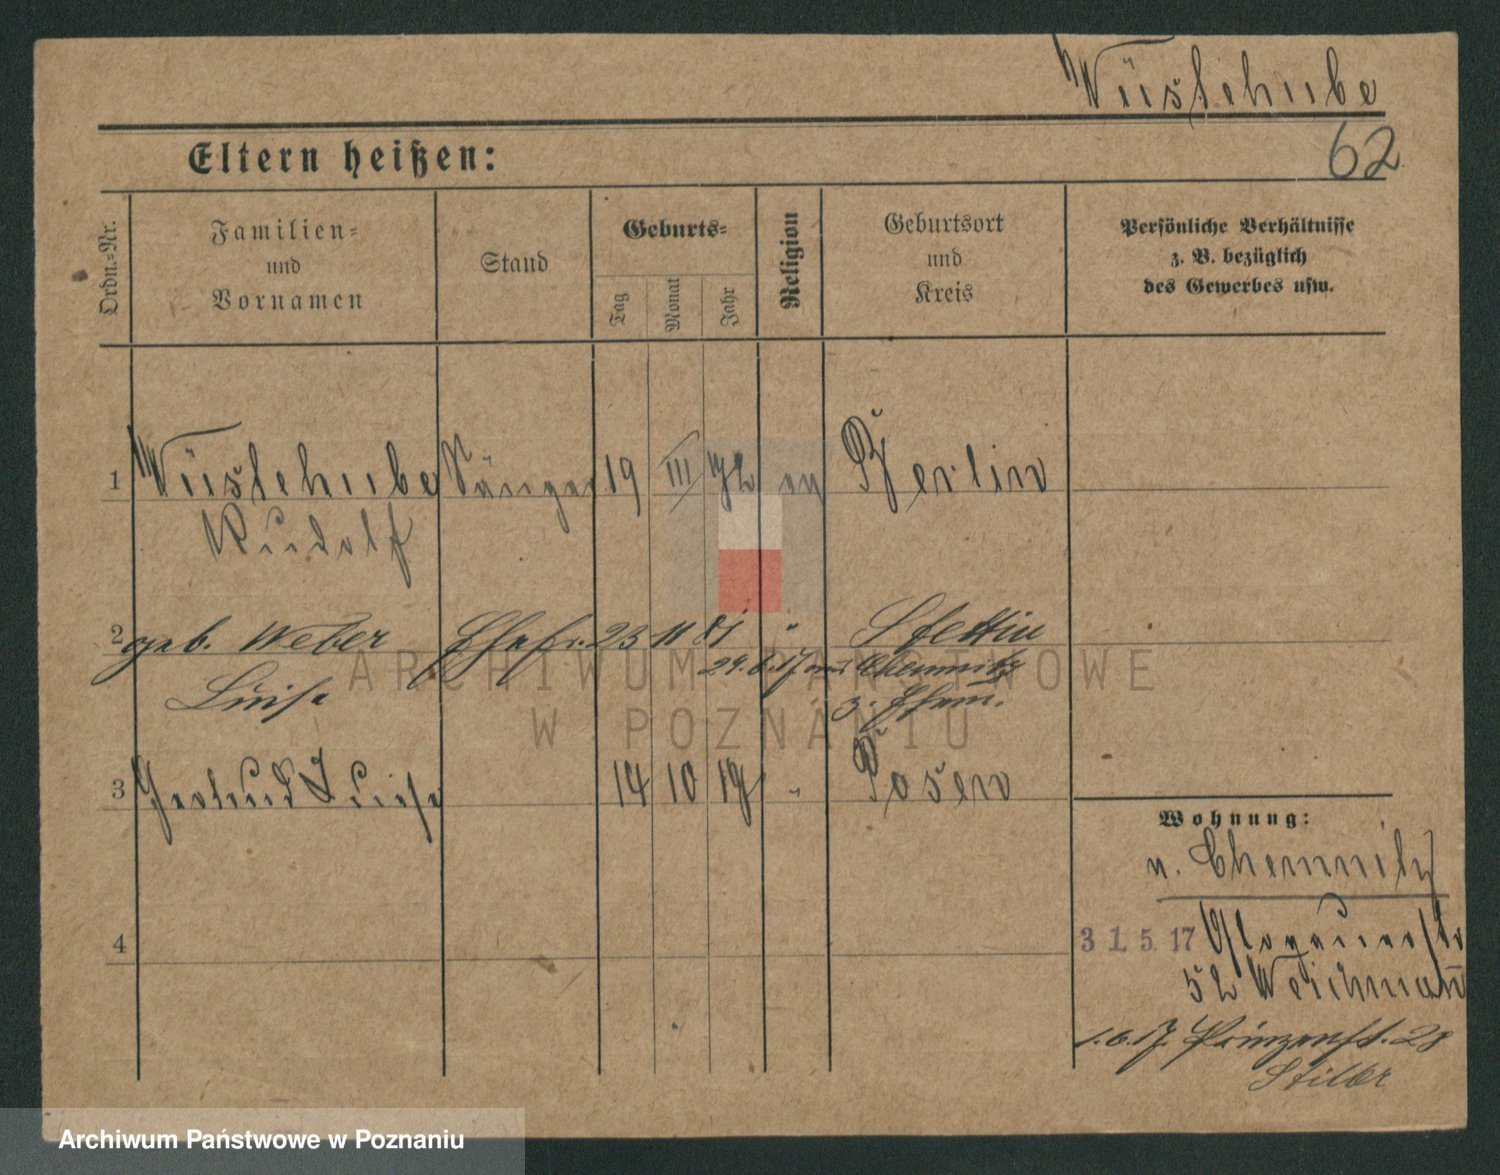 Wüstehube
62
Eltern heißen:
Ordn.-Nr.
Familien-
und
Vornamen
Stand
Geburts-
Tag
Monat
Jahr
Religion
Geburtsort
und
Kreis
Persönliche Verhältnisse
z. B. bezüglich
des Gewerbes usw.
1 Wüstehube Sänger 19 III 72 ev Berlin
Rudolf
2 geb. Weber Ehefr. 23 11 81 " Stettin
29.6.17 aus Chemnitz
Luise z. Ehem.
3 Gertrud Luise 14 10 17 " Posen
4
Wohnung:
v. Chemnitz
31.5.17 Glogauerstr
52 Weichmann
1.6.17. Prinzenst. 28
Stiller
ARCHIWUM PAŃSTWOWE
W POZNANIU
Archiwum Państwowe w Poznaniu